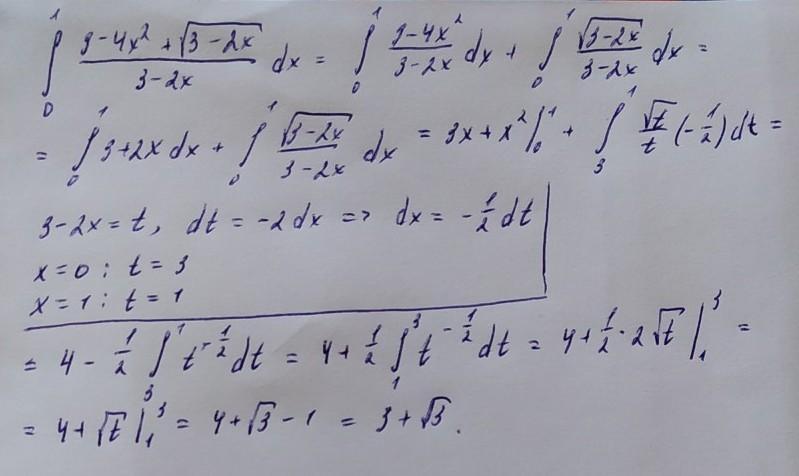 ∫₀¹ (9-4x² + √(3-2x))/(3-2x) dx = ∫₀¹ (9-4x²)/(3-2x) dx + ∫₀¹ √(3-2x)/(3-2x) dx =
= ∫₀¹ 3+2x dx + ∫₀¹ √(3-2x)/(3-2x) dx = 3x+x² |₀¹ + ∫₃¹ √t/t (-1/2) dt =
3-2x = t, dt = -2dx => dx = -1/2 dt
x=0 : t = 3
x=1 : t = 1
= 4 - 1/2 ∫₃¹ t^(-1/2) dt = 4 + 1/2 ∫₁³ t^(-1/2) dt = 4 + 1/2 · 2√t |₁³ =
= 4+√t |₁³ = 4+√3 - 1 = 3+√3.